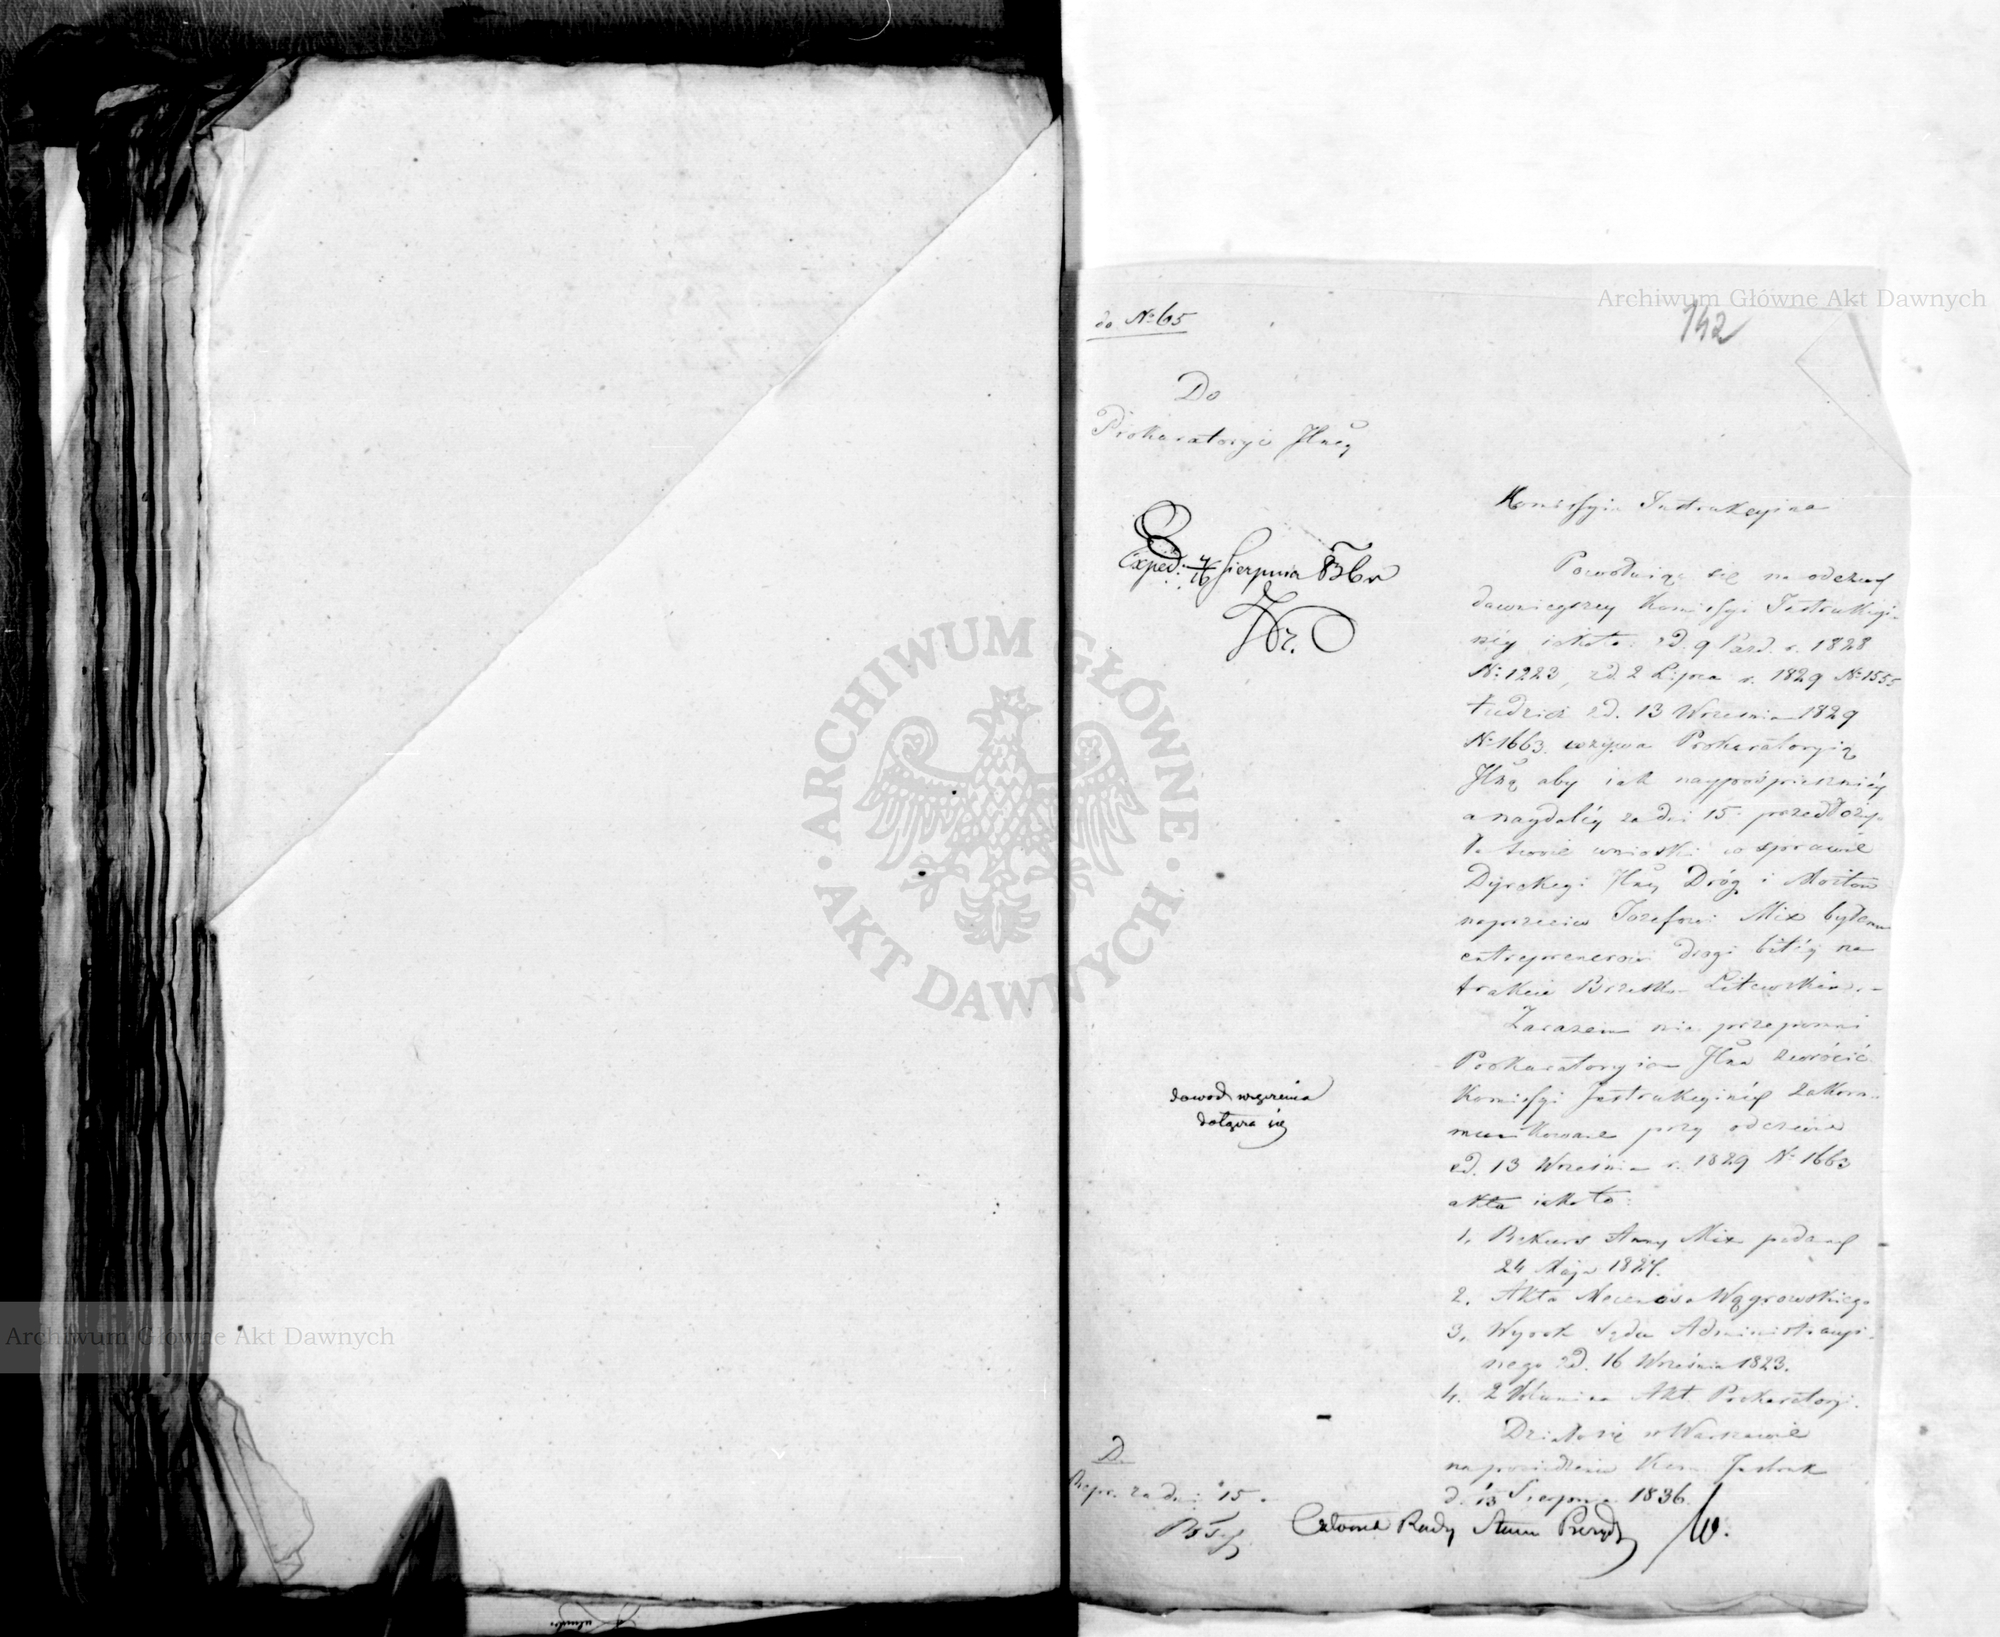 Archiwum Główne Akt Dawnych
142
do No 65
Do
Prokuratoryi Jlney
Exped: 4/16 Sierpnia 836 r
Kommissyia Instrukcyina
Powołuiąc się na odezwy
dawnieyszey Komissyi Instrukcyi-
néy iakoto: z d. 9 Paźd. r. 1828
No 1223, z d. 2 Lipca r. 1829 No 1555
tudzież z d. 13 Września 1829
No 1663. wzywa Prokuratoryią
Jlną aby iak nayspieszniéy
a naydaléy za dni 15 przedłoży-
ła swoie wnioski w sprawie
Dyrekcyi Jlney Dróg i Mostów
naprzeciw Józefowi Mix byłemu
entreprenerowi drogi bitéy na
trakcie Brzesko-Litewskim.-
Zarazem nie przepomni
Prokuratoryia Jlna zwrócić
Komissyi Instrukcyinéy zakom-
munikowane przy odezwie
z d. 13 Września r. 1829 No 1663
akta iakoto:
1, Rekurs Anny Mix podany
24 Maja 1827.
2. Akta Mecenasa Wągrowskiego
3, Wyrok Sądu Administracyi-
nego z d. 16 Września 1823.
4. 2 Volumina Akt Prokuratoryi.
Działo się w Warszawie
na posiedzeniu Kom. Instruk
d. 13 Sierpnia 1836.
Członek Rady Stanu Prezyd
dowód wręczenia
dołącza się
D.
Repr. za dni 15.
ARCHIWUM GŁÓWNE · AKT DAWNYCH ·
Archiwum Główne Akt Dawnych